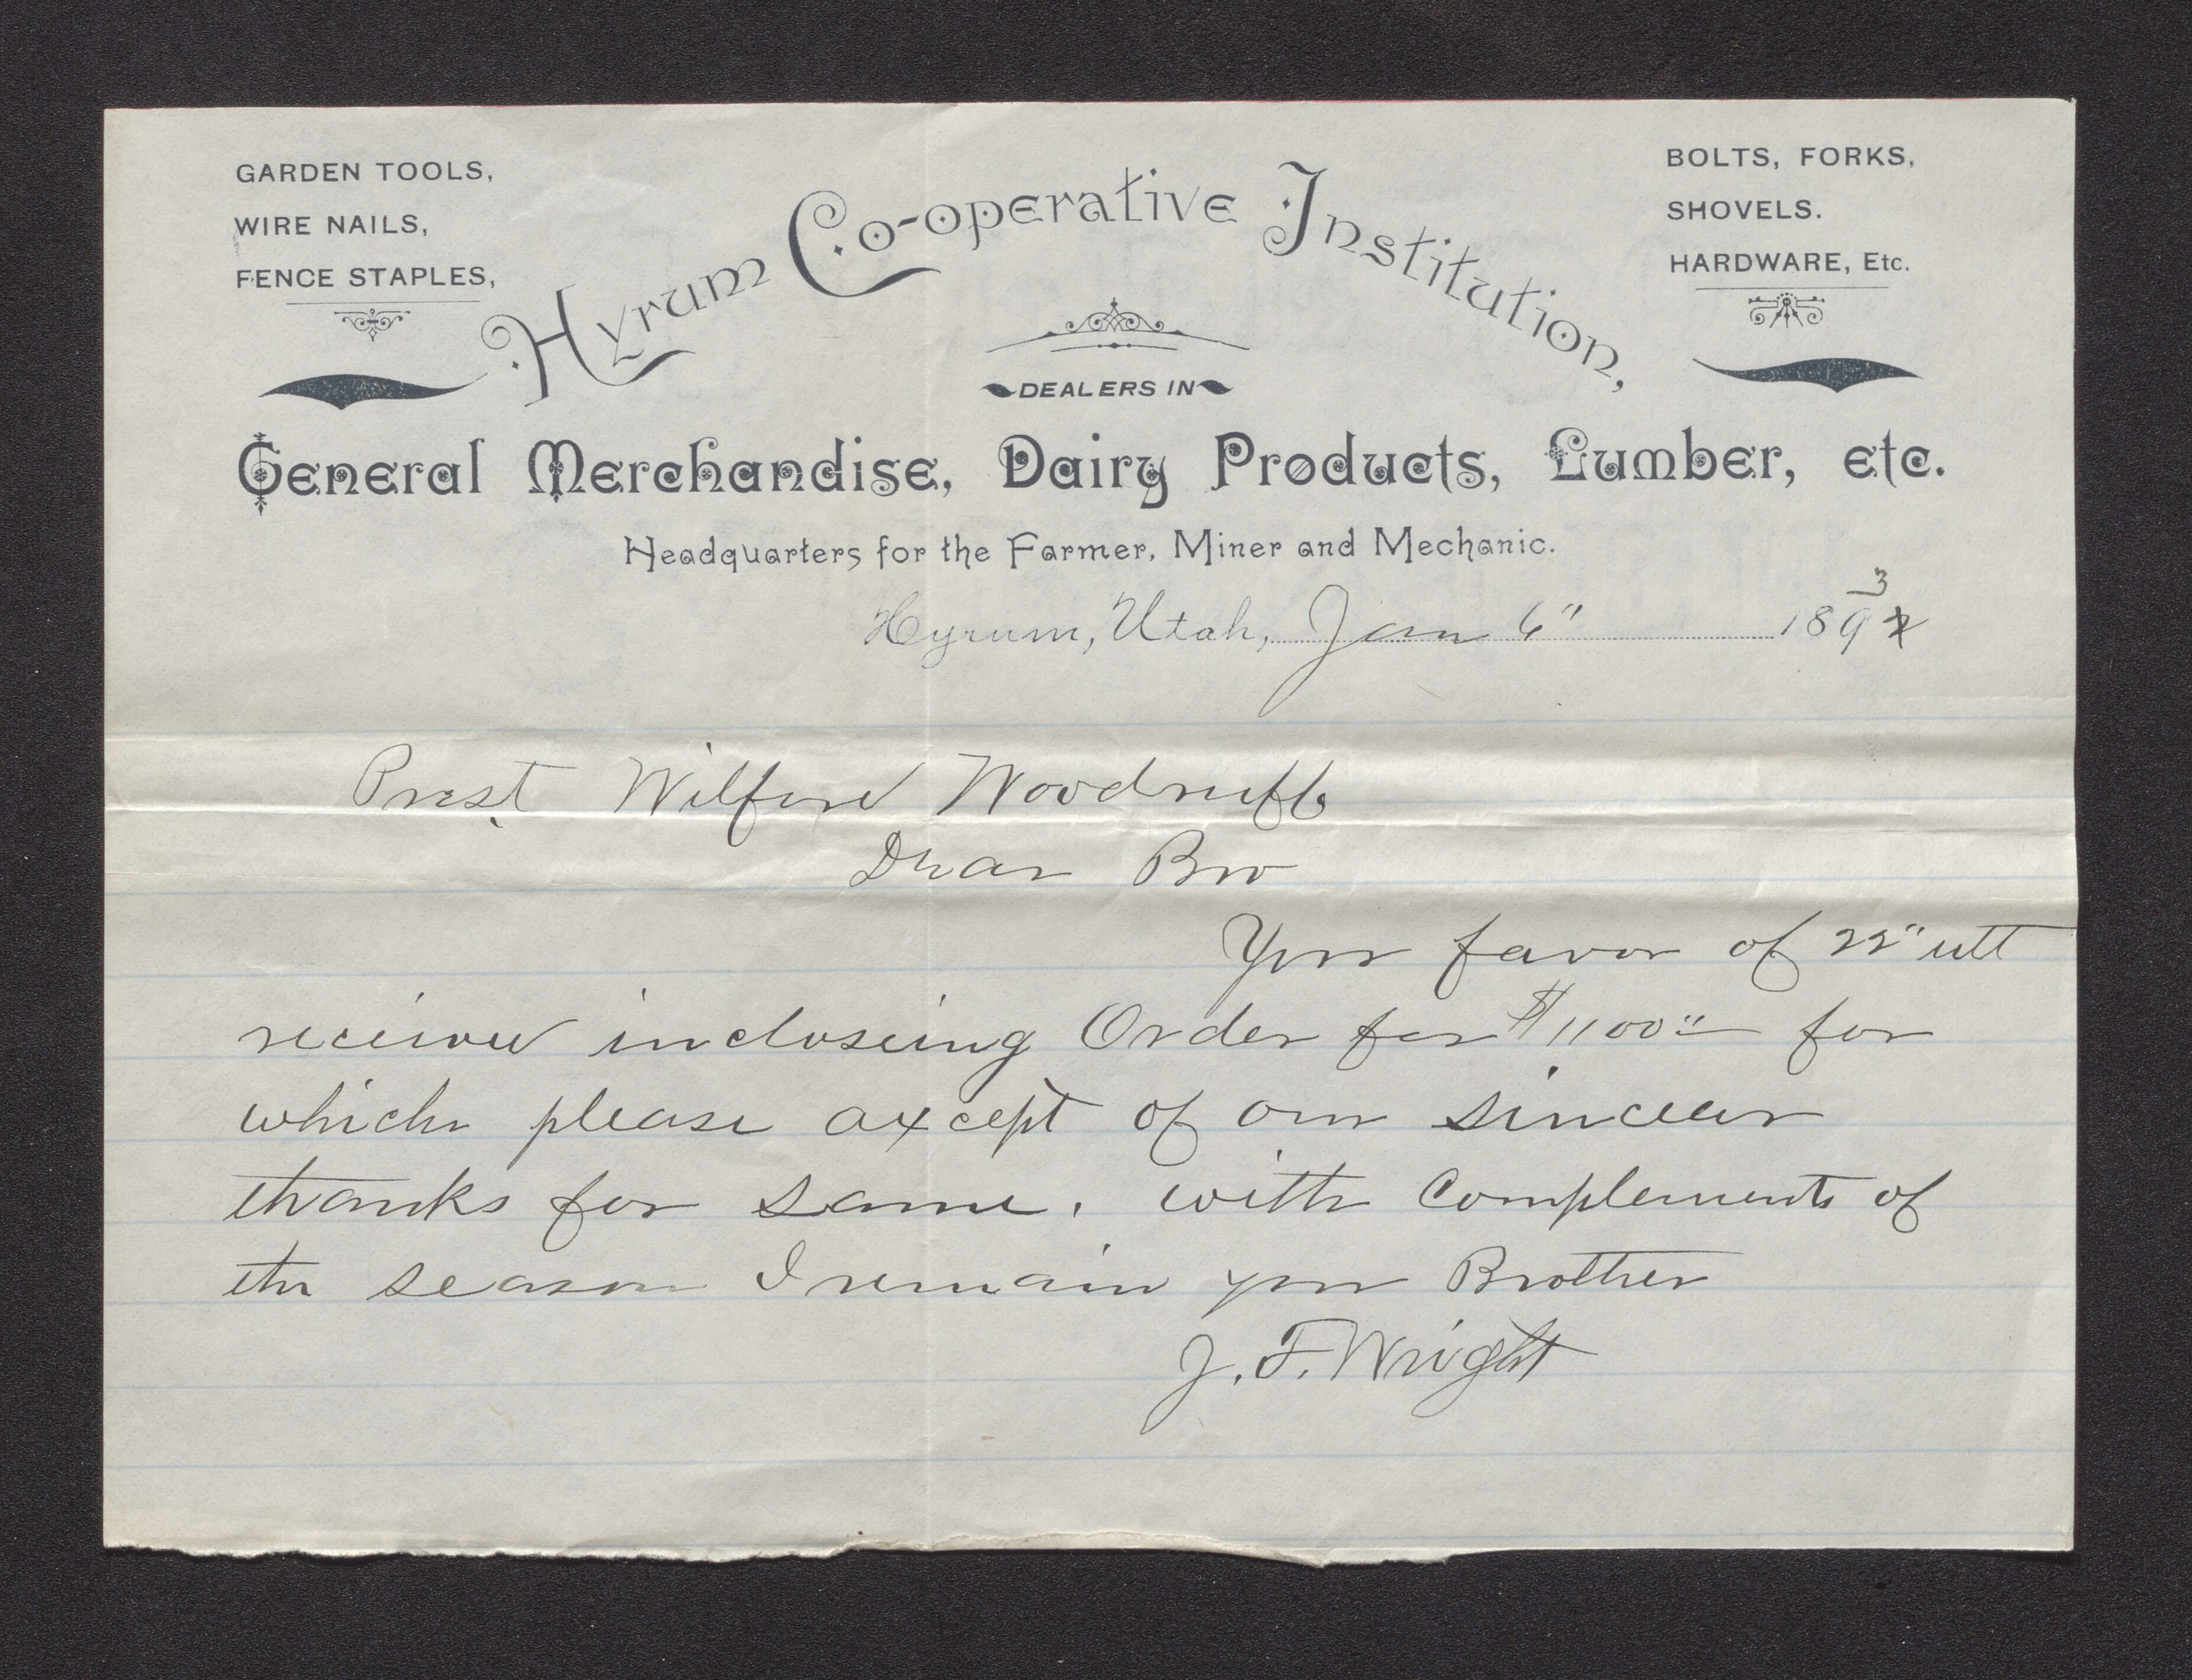 GARDEN TOOLS,
WIRE NAILS,
FENCE STAPLES,
Hyrum Co-operative Institution,
BOLTS, FORKS,
SHOVELS.
HARDWARE, Etc.
DEALERS IN
General Merchandise, Dairy Products, Lumber, etc.
Headquarters for the Farmer, Miner and Mechanic.
Hyrum, Utah, Jan 6" 1893
Prest Wilford Woodruff
Dear Bro
Your favor of 22" ult
received incloseing Order for $1100" for
which please axcept of our sinceer
thanks for same. with Complements of
the season I remain your Brother
J. F. Wright